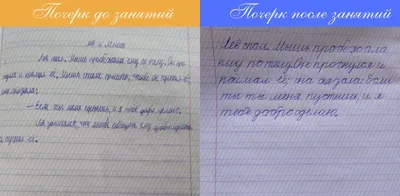 Почерк до занятий
Лев и Мышь
Лев спал. Мышь пробежала ему по телу. Он про
снулся и поймал её. Мышь стала просить, чтобы он пустил её;
она сказала:
— Если ты меня пустишь, и я тебе добро сделаю.
Лев засмеялся, что мышь обещает ему добро сделать,
и пустил её.
Почерк после занятий
Лев спал. Мышь пробежала
ему по телу. Он проснулся и
поймал её. она сказала: Если
ты ты меня пустишь, и я
тебе добро сделаю.